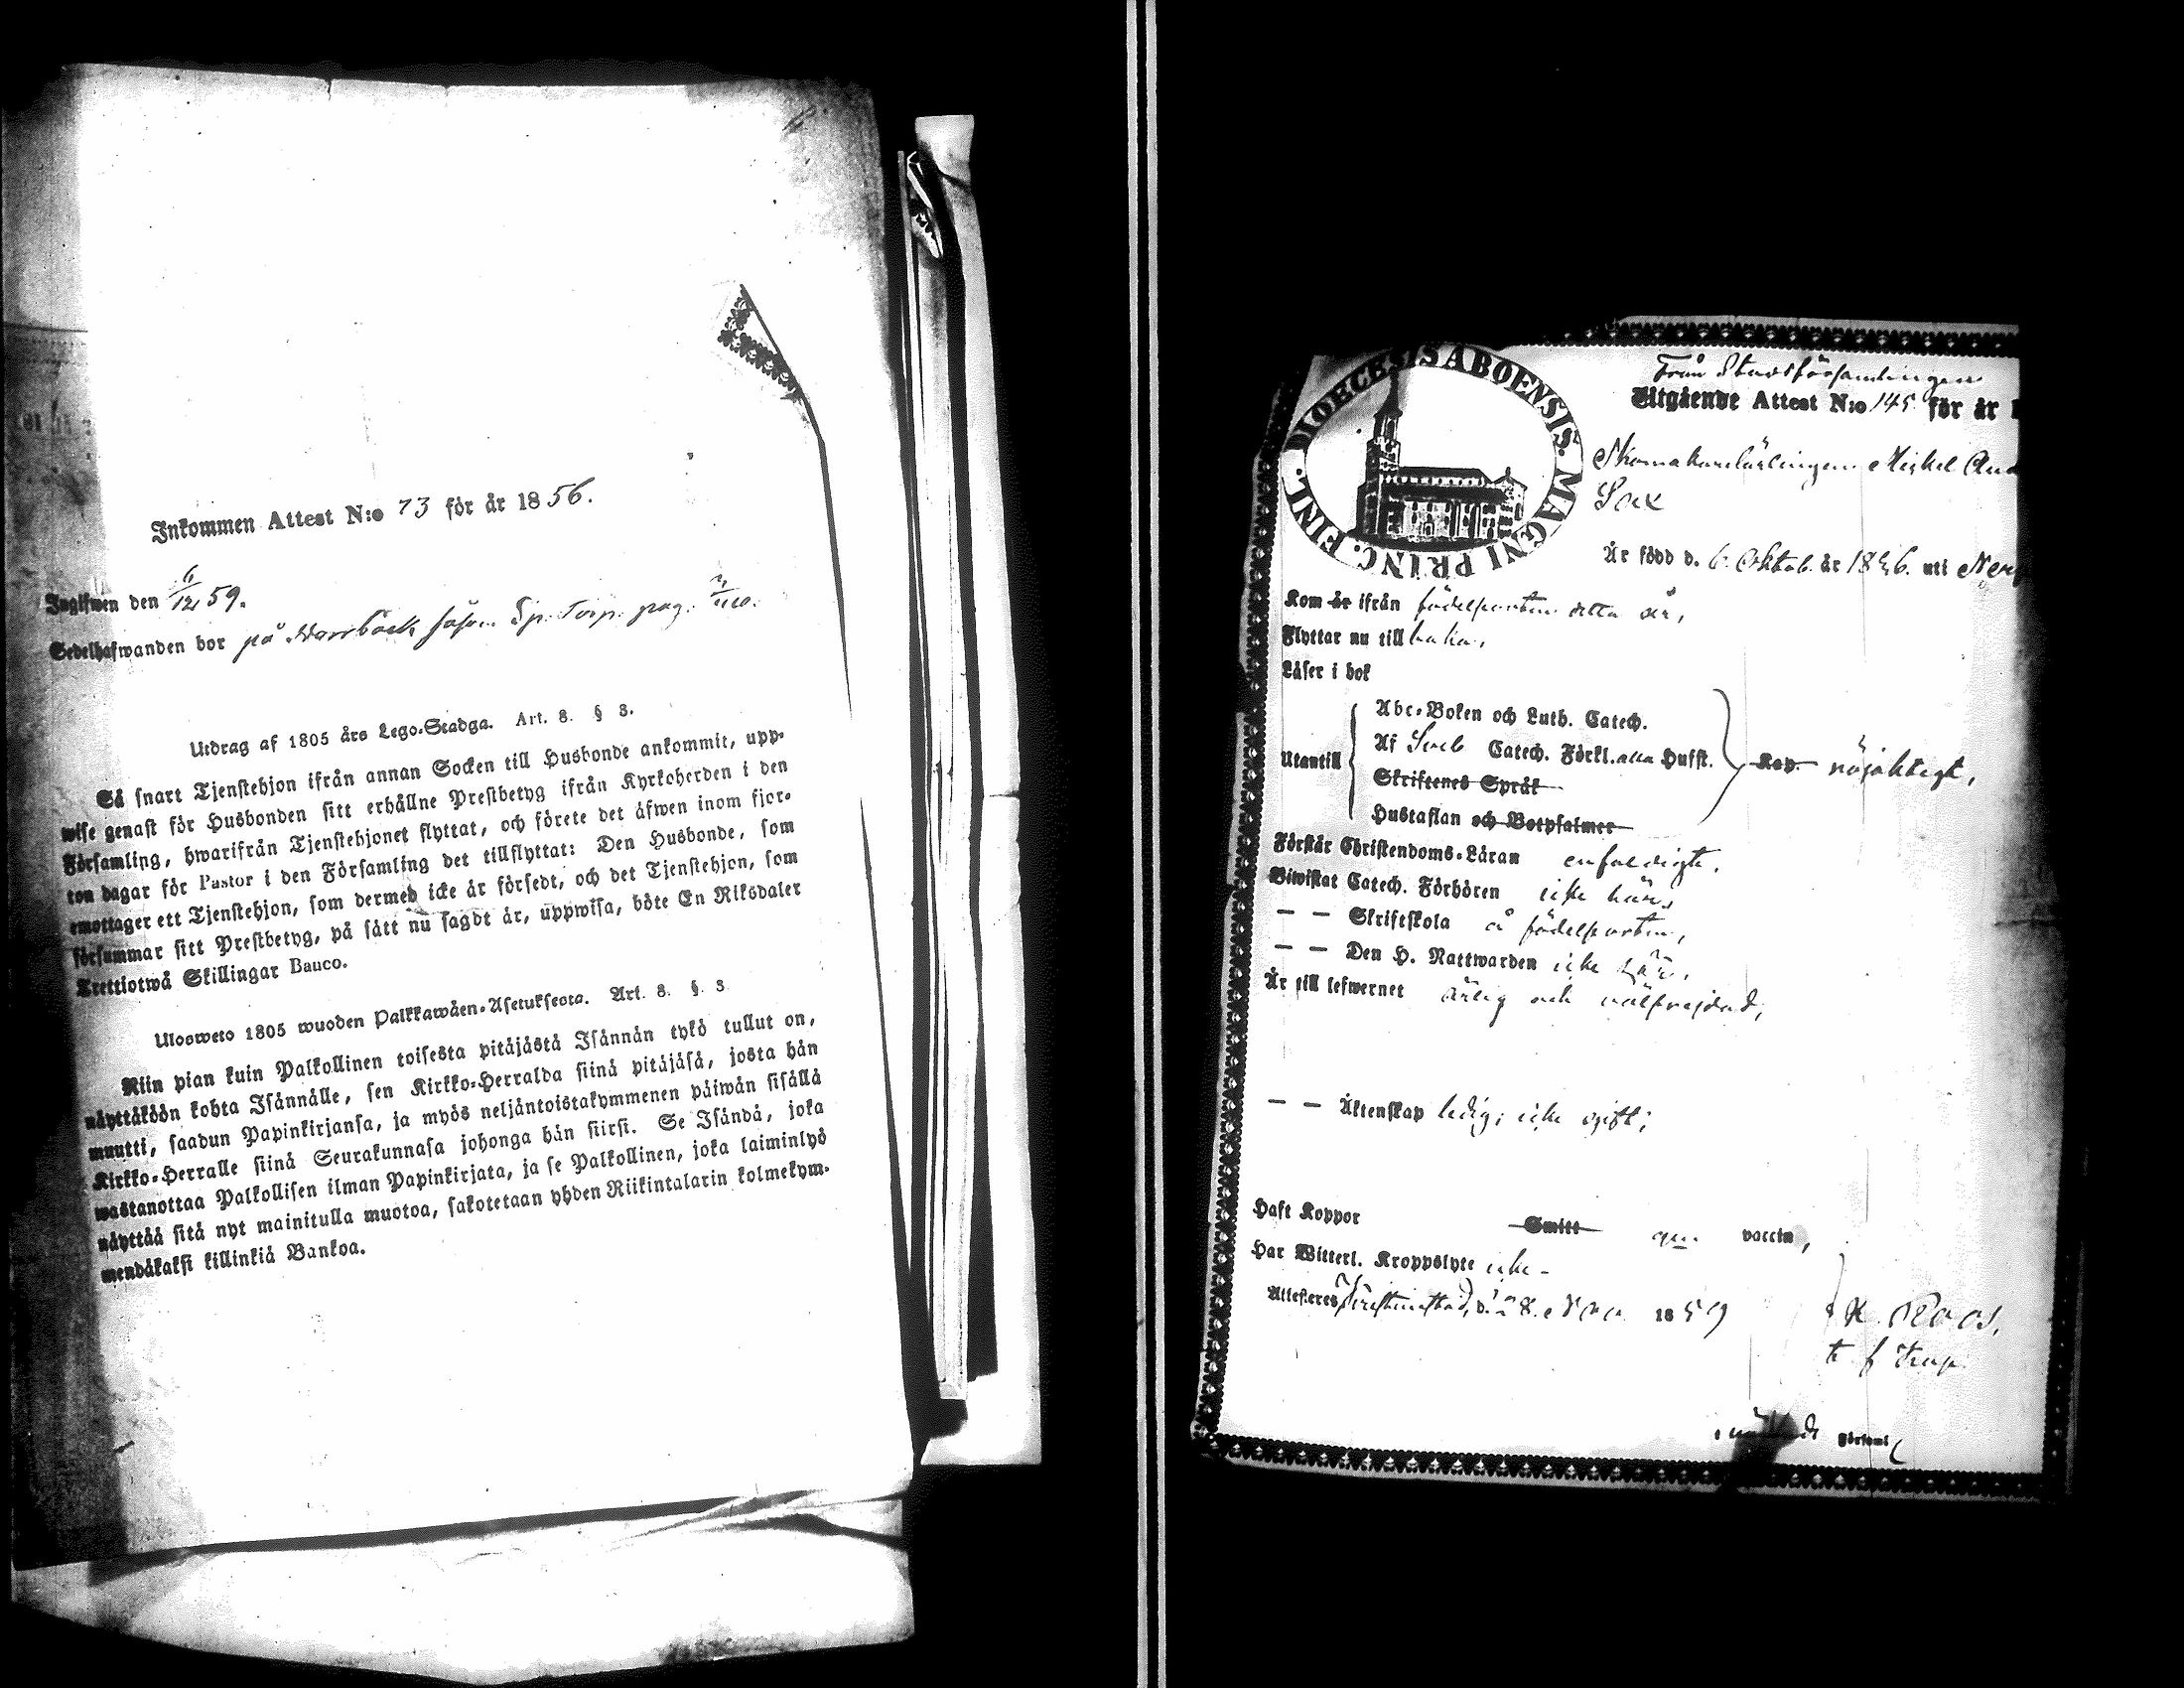 Inkommen Attest N:o 73 för år 1856.
Ingifwen den 6/12 59.
Sedelhafwanden bor på Norrbäck
Utdrag af 1805 års Lego-Stadga. Art. 8. § 3.
Så snart Tjenstehjon ifrån annan Socken till Husbonde ankommit, upp-
wise genast för Husbonden sitt erhållne Prestbetyg ifrån Kyrkoherden i den
Församling, hwarifrån Tjenstehjonet flyttat, och förete det äfwen inom fjor-
ton dagar för Pastor i den Församling det tillflyttat: Den Husbonde, som
emottager ett Tjenstehjon, som dermed icke är försedt, och det Tjenstehjon, som
försummar sitt Prestbetyg, på sätt nu sagdt är, uppwisa, böte En Riksdaler
Trettiotwå Skillingar Banco.
Ulosweto 1805 wuoden Palkkawäen-Asetuksesta. Art. 8. §. 3
Niin pian kuin Palkollinen toisesta pitäjästä Isännän tykö tullut on,
näyttäköön kohta Isännälle, sen Kirkko-Herralda siinä pitäjäsä, josta hän
muutti, saadun Papinkirjansa, ja myös neljäntoistakymmenen päiwän sisällä
Kirkko-Herralle siinä Seurakunnasa johonga hän siirsi. Se Isändä, joka
wastanottaa Palkollisen ilman Papinkirjata, ja se Palkollinen, joka laiminlyö
näyttää sitä nyt mainitulla muotoa, sakotetaan yhden Riikintalarin kolmekym-
mendäkaksi killinkiä Bankoa.
DIOECESIS ABOENSIS. MAGNI PRINC. FINL.
Från Stadsförsamlingen
Utgående Attest N:o 145 för år
Skomakarelärlingen Michel And
Sax
Är född d. 6 Oktob. år 1836. uti Ner
Kom år ifrån födelseorten detta år,
Flyttar nu till baka,
Läser i bok
Abc-Boken och Luth. Catech.
Utantill
Af Sveb Catech. Förkl. alla Hufst.
Skriftenes Språk
Hustaflan och Botpsalmer
Kap. nöjaktigt,
Förstår Christendoms-Läran enfaldigt.
Biwistat Catech. Förhören icke här,
— — Skriftskola å födelseorten,
— — Den H. Nattwarden icke här,
Är till lefwernet ärlig och välfrejdad,
— — Äktenskap ledig; icke gift;
Haft Koppor Smitt gm vaccin,
Har Witterl. Kroppslyte icke –
Attesteras Christinestad, d. 28. Nov. 1859
K. Roos,
Församl